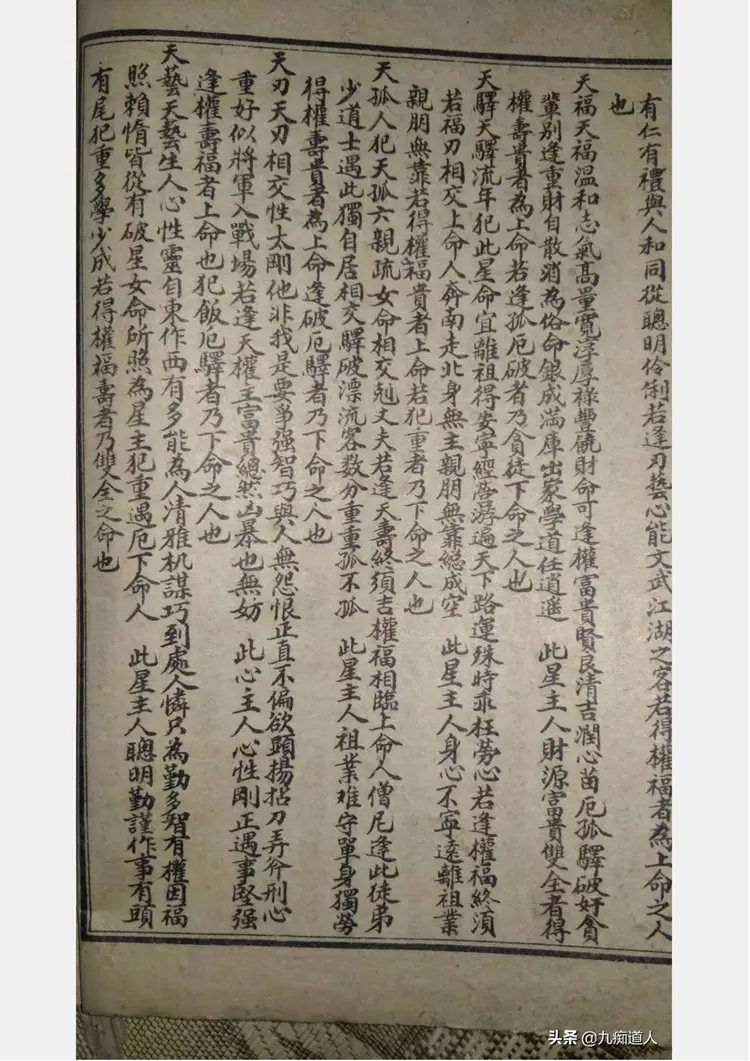 有仁有禮與人和同從聰明伶俐若逢刃藝心能文武江湖之客若得權福者為上命之人
也
天福天福温和志氣高量寬淳厚祿豐饒財命可逢權富貴賢良清吉潤心苗厄孤驛破奸貪
輩別逢重財自散消為俗命銀成滿庫出家學道任逍遥 此星主人財源富貴雙全者得
權壽貴者為上命若逢孤厄破者乃貪徒下命之人也
天驛天驛流年犯此星命宜離祖得安寧經商游遍天下路運殊時乖枉勞心若逢權福終須
若福刃相交上命人奔南走北身無主親朋無靠總成空 此星主人身心不寧遠離祖業
親朋無靠若得權福貴者上命若犯重者乃下命之人也
天孤人犯天孤六親疏女命相交尅丈夫若逢天壽終須吉權福相臨上命人僧尼逢此徒弟
少道士遇此獨自居相交驛破漂流客数分重重孤不孤 此星主人祖業难守單身獨勞
得權壽貴者為上命逢破厄驛者乃下命之人也
天刃天刃相交性太剛他非我是要爭强智巧與人無怨恨正直不偏欲顕揚拈刀弄斧刑心
重好似將軍入戰場若逢天權主富貴總然凶暴也無妨 此心主人心性剛正遇事堅强
逢權壽福者上命也犯飯厄驛者乃下命之人也
天藝天藝生人心性靈自東作西有多能為人清雅机謀巧到處人憐只為勤多智有權因福
照賴惰皆從有破星女命所照為星主犯重遇厄下命人 此星主人聰明勤謹作事有頭
有尾犯重多學少成若得權福壽者乃雙全之命也
头条 @九痴道人